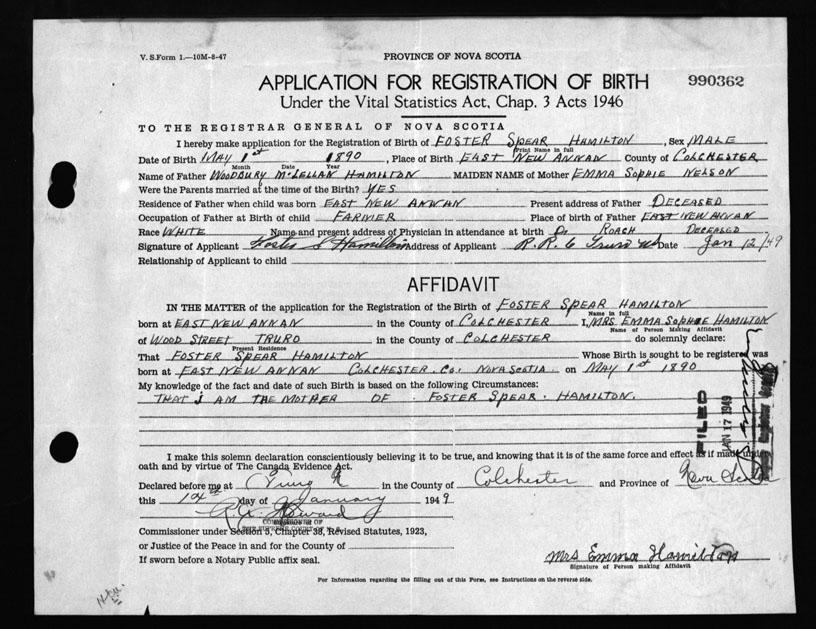 V. S. Form 1.—10M-8-47
PROVINCE OF NOVA SCOTIA
APPLICATION FOR REGISTRATION OF BIRTH 990362
Under the Vital Statistics Act, Chap. 3 Acts 1946
TO THE REGISTRAR GENERAL OF NOVA SCOTIA
I hereby make application for the Registration of Birth of FOSTER SPEAR HAMILTON, Sex MALE
Print Name in full
Date of Birth MAY 1st 1890, Place of Birth EAST NEW ANNAN County of COLCHESTER
Month Date Year
Name of Father WOODBURY McLELLAN HAMILTON MAIDEN NAME of Mother EMMA SOPHIE NELSON
Were the Parents married at the time of the Birth? YES
Residence of Father when child was born EAST NEW ANNAN Present address of Father DECEASED
Occupation of Father at Birth of child FARMER Place of birth of Father EAST NEW ANNAN
Race WHITE Name and present address of Physician in attendance at birth Dr ROACH DECEASED
Signature of Applicant Foster S Hamilton Address of Applicant R.R. 6 Truro NS Date Jan 12/49
Relationship of Applicant to child
AFFIDAVIT
IN THE MATTER of the application for the Registration of the Birth of FOSTER SPEAR HAMILTON
Name in full
born at EAST NEW ANNAN in the County of COLCHESTER I, MRS EMMA SOPHIE HAMILTON
Name of Person Making Affidavit
of WOOD STREET TRURO in the County of COLCHESTER do solemnly declare:
Present Residence
That FOSTER SPEAR HAMILTON Whose Birth is sought to be registered was
born at EAST NEW ANNAN COLCHESTER Co. NOVA SCOTIA on MAY 1st 1890
My knowledge of the fact and date of such Birth is based on the following Circumstances:
THAT I AM THE MOTHER OF FOSTER SPEAR HAMILTON.
FILED
JAN 17 1949
I make this solemn declaration conscientiously believing it to be true, and knowing that it is of the same force and effect as if made under
oath and by virtue of The Canada Evidence Act.
Declared before me at Truro in the County of Colchester and Province of Nova Scotia
this 14th day of January 1949
COMMISSIONER OF
THE SUPREME COURT OF N.S.
Commissioner under Section 5, Chapter 38, Revised Statutes, 1923,
or Justice of the Peace in and for the County of
If sworn before a Notary Public affix seal.
Mrs Emma Hamilton
Signature of Person making Affidavit
For Information regarding the filling out of this Form, see Instructions on the reverse side.